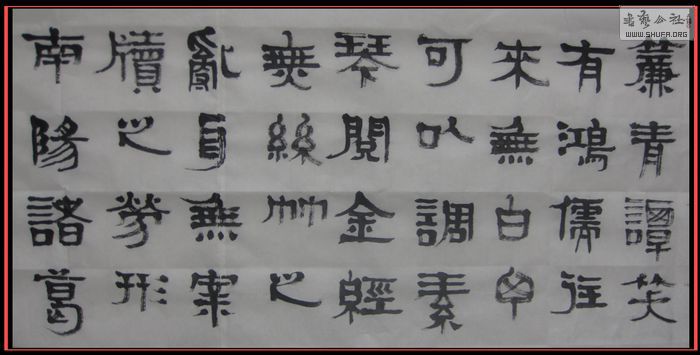 簾青譚笑
有鴻儒往
來無白丁
可以調素
琴閱金經
無絲竹之
亂耳無案
牘之勞形
南陽諸葛
書藝公社
WWW.SHUFA.ORG